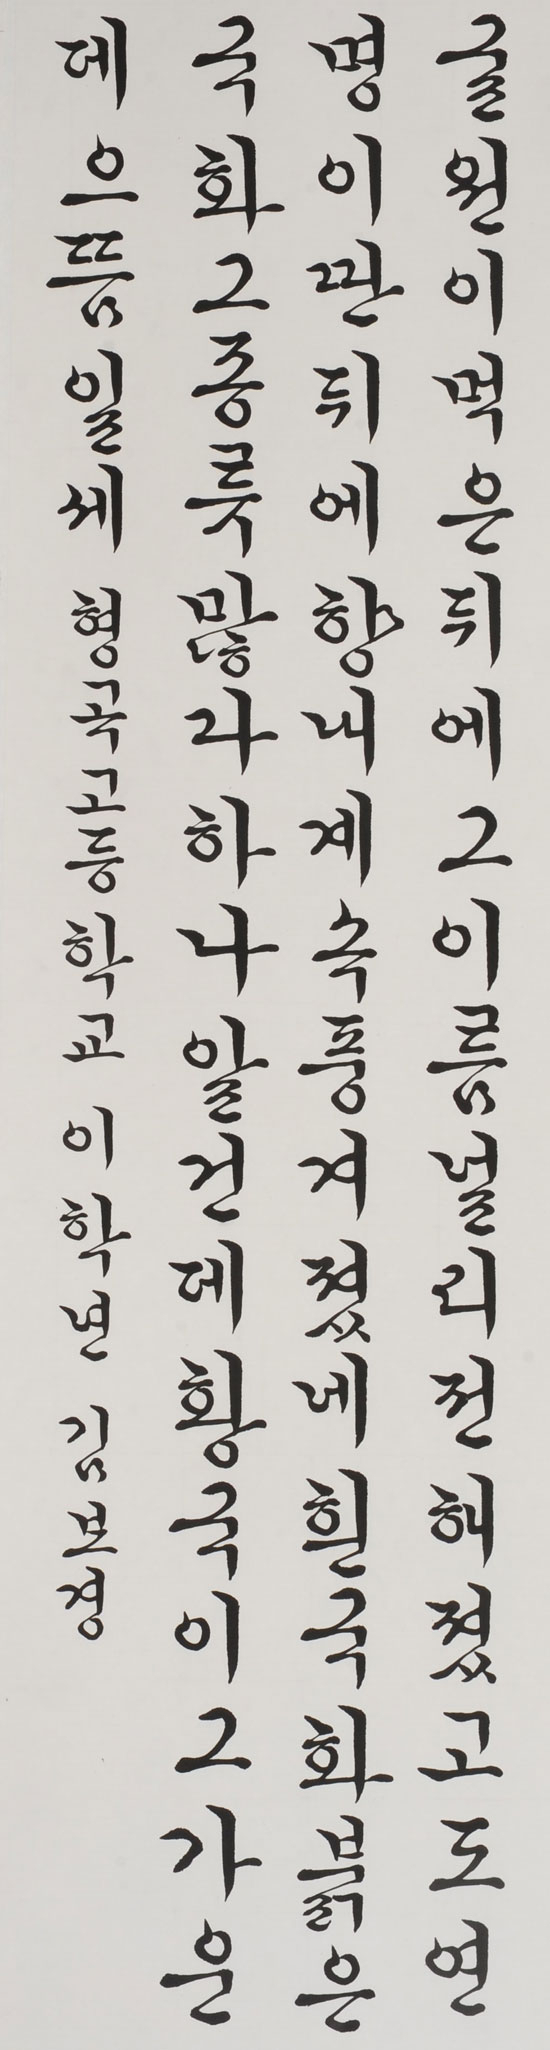 굴원이먹은뒤에그이름널리전해졌고도연
명이딴뒤에향내계속풍겨졌네흰국화붉은
국화그종륫많다하나알건데황국이그가운
데으뜸일세 형곡고등학교 이학년 김보경